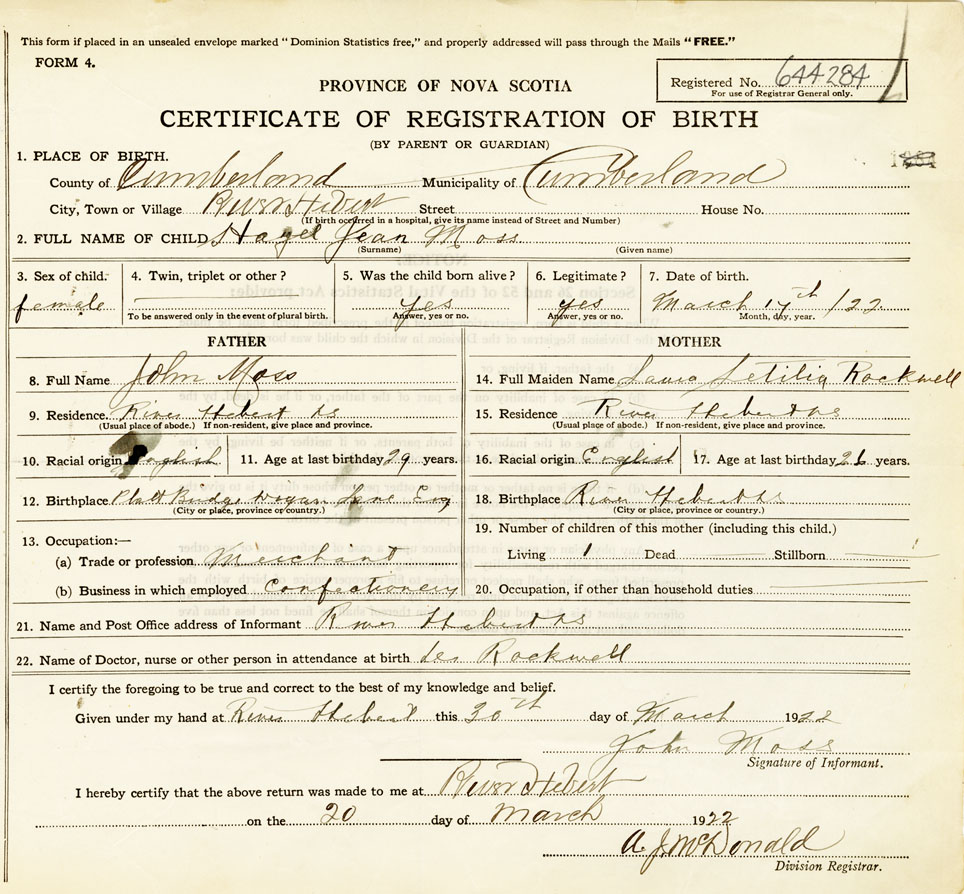 This form if placed in an unsealed envelope marked "Dominion Statistics free," and properly addressed will pass through the Mails "FREE."
FORM 4.
Registered No. 644284
For use of Registrar General only.
PROVINCE OF NOVA SCOTIA
CERTIFICATE OF REGISTRATION OF BIRTH
(BY PARENT OR GUARDIAN)
1. PLACE OF BIRTH.
County of Cumberland Municipality of Cumberland
City, Town or Village River Hebert Street House No.
(If birth occurred in a hospital, give its name instead of Street and Number)
2. FULL NAME OF CHILD Hazel Jean Moss
(Surname) (Given name)
3. Sex of child. 4. Twin, triplet or other? 5. Was the child born alive? 6. Legitimate? 7. Date of birth.
female yes yes March 17th /22
To be answered only in the event of plural birth. Answer, yes or no. Answer, yes or no. Month, day, year.
FATHER MOTHER
8. Full Name John Moss 14. Full Maiden Name Laura Letitia Rockwell
9. Residence. River Hebert NS 15. Residence River Hebert NS
(Usual place of abode.) If non-resident, give place and province. (Usual place of abode.) If non-resident, give place and province.
10. Racial origin English 11. Age at last birthday 29 years. 16. Racial origin English 17. Age at last birthday 26 years.
12. Birthplace Platt Bridge Wigan Eng 18. Birthplace River Hebert NS
(City or place, province or country.) (City or place, province or country.)
13. Occupation:— 19. Number of children of this mother (including this child.)
(a) Trade or profession Merchant Living 1 Dead Stillborn
(b) Business in which employed Confectionery 20. Occupation, if other than household duties
21. Name and Post Office address of Informant River Hebert NS
22. Name of Doctor, nurse or other person in attendance at birth Rockwell
I certify the foregoing to be true and correct to the best of my knowledge and belief.
Given under my hand at River Hebert this 20th day of March 1922
John Moss
Signature of Informant.
I hereby certify that the above return was made to me at River Hebert
on the 20 day of March 1922
A. J. McDonald
Division Registrar.